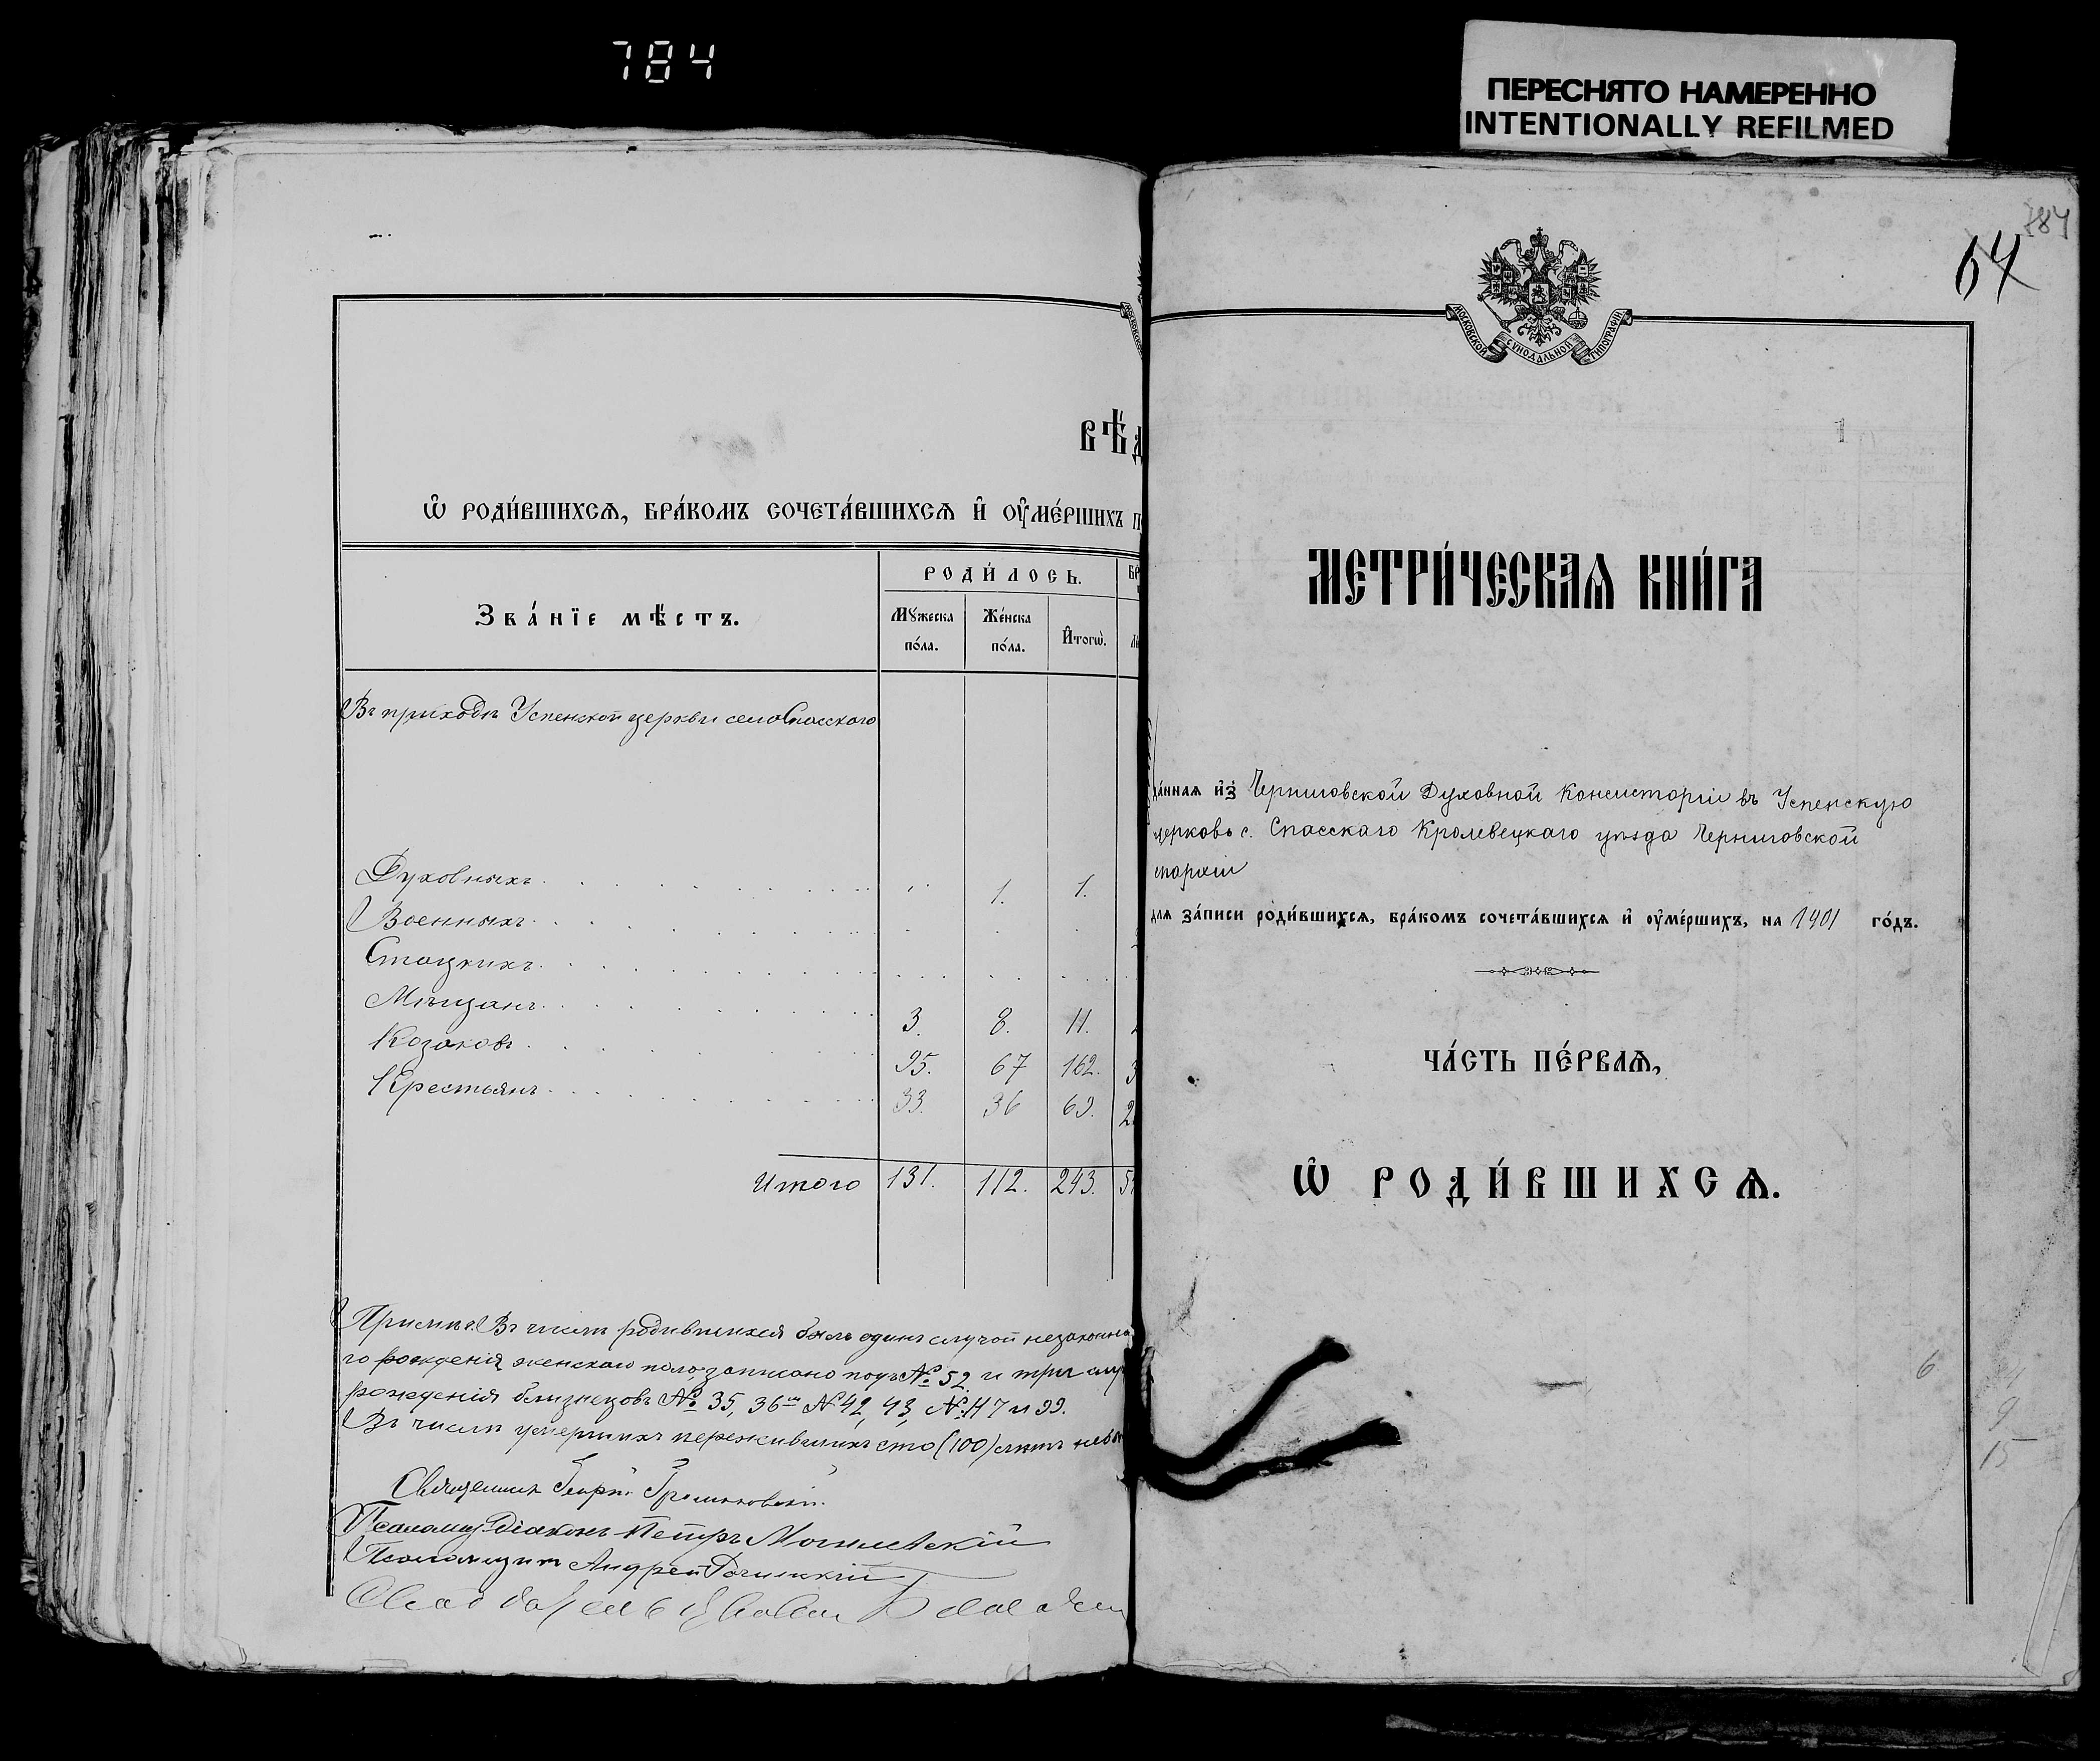 784
ПЕРЕСНЯТО НАМЕРЕННО
INTENTIONALLY REFILMED
ВѢД
Ѡ҆ РОДИ́ВШИХСѦ, БРА́КОМЪ СОЧЕТА́ВШИХСѦ И҆ ОУ҆МЕ́РШИХЪ П
Зва́нїе мѣ́стъ.
РОДИ́ЛОСЬ.
Мꙋжеска по́ла.
Же́нска по́ла.
И҆тогѡ̀.
Въ приходѣ Успенской церкви села Спасского
Духовныхъ 1. 1.
Военныхъ
Статскихъ
Мѣщанъ 3. 8. 11.
Козаковъ 95. 67 162.
Крестьянъ 33. 36 69.
Итого 131. 112. 243.
Примѣч. Въ числѣ родившихся былъ одинъ случай незаконна
го рожденія женскаго пола, записано подъ № 52 и три слу
рожденія близнецовъ № 35, 36 № 42, 43, № 47 и 99.
Въ числѣ умершихъ пережившихъ сто (100) лѣтъ не
Священникъ Георгій
Псаломщ. Діаконъ Петръ
Псаломщикъ Андрей
784
64
МОСКОВСКОЙ СѴНОДАЛЬНОЙ ТИПОГРАФІИ
1
МЕТРИ́ЧЕСКАѦ КНИ́ГА
да́ннаѧ и҆з̾ Черниговской Духовной Консисторіи въ Успенскую
церковь с. Спасскаго Кролевецкаго уѣзда Черниговской
епархіи
для за́писи роди́вшихсѧ, бра́комъ сочета́вшихсѧ и҆ оу҆ме́ршихъ, на 1901 го́дъ.
ЧА́СТЬ ПЕ́РВАѦ,
Ѡ҆ РОДИ́ВШИХСѦ.
6
9
15